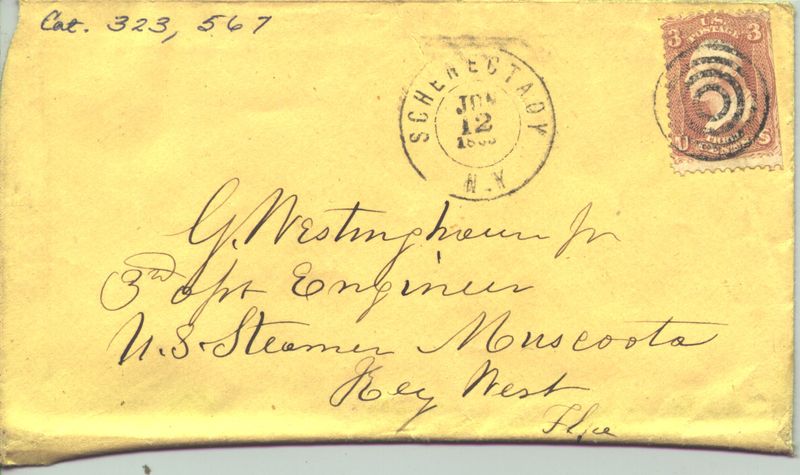 Cat. 323, 567
SCHENECTADY
JUN
12
N.Y
3 U.S. 3
POSTAGE
U S
G. Westinghouse Jr
3rd Asst Engineer
U.S. Steamer Muscoota
Key West
Fla